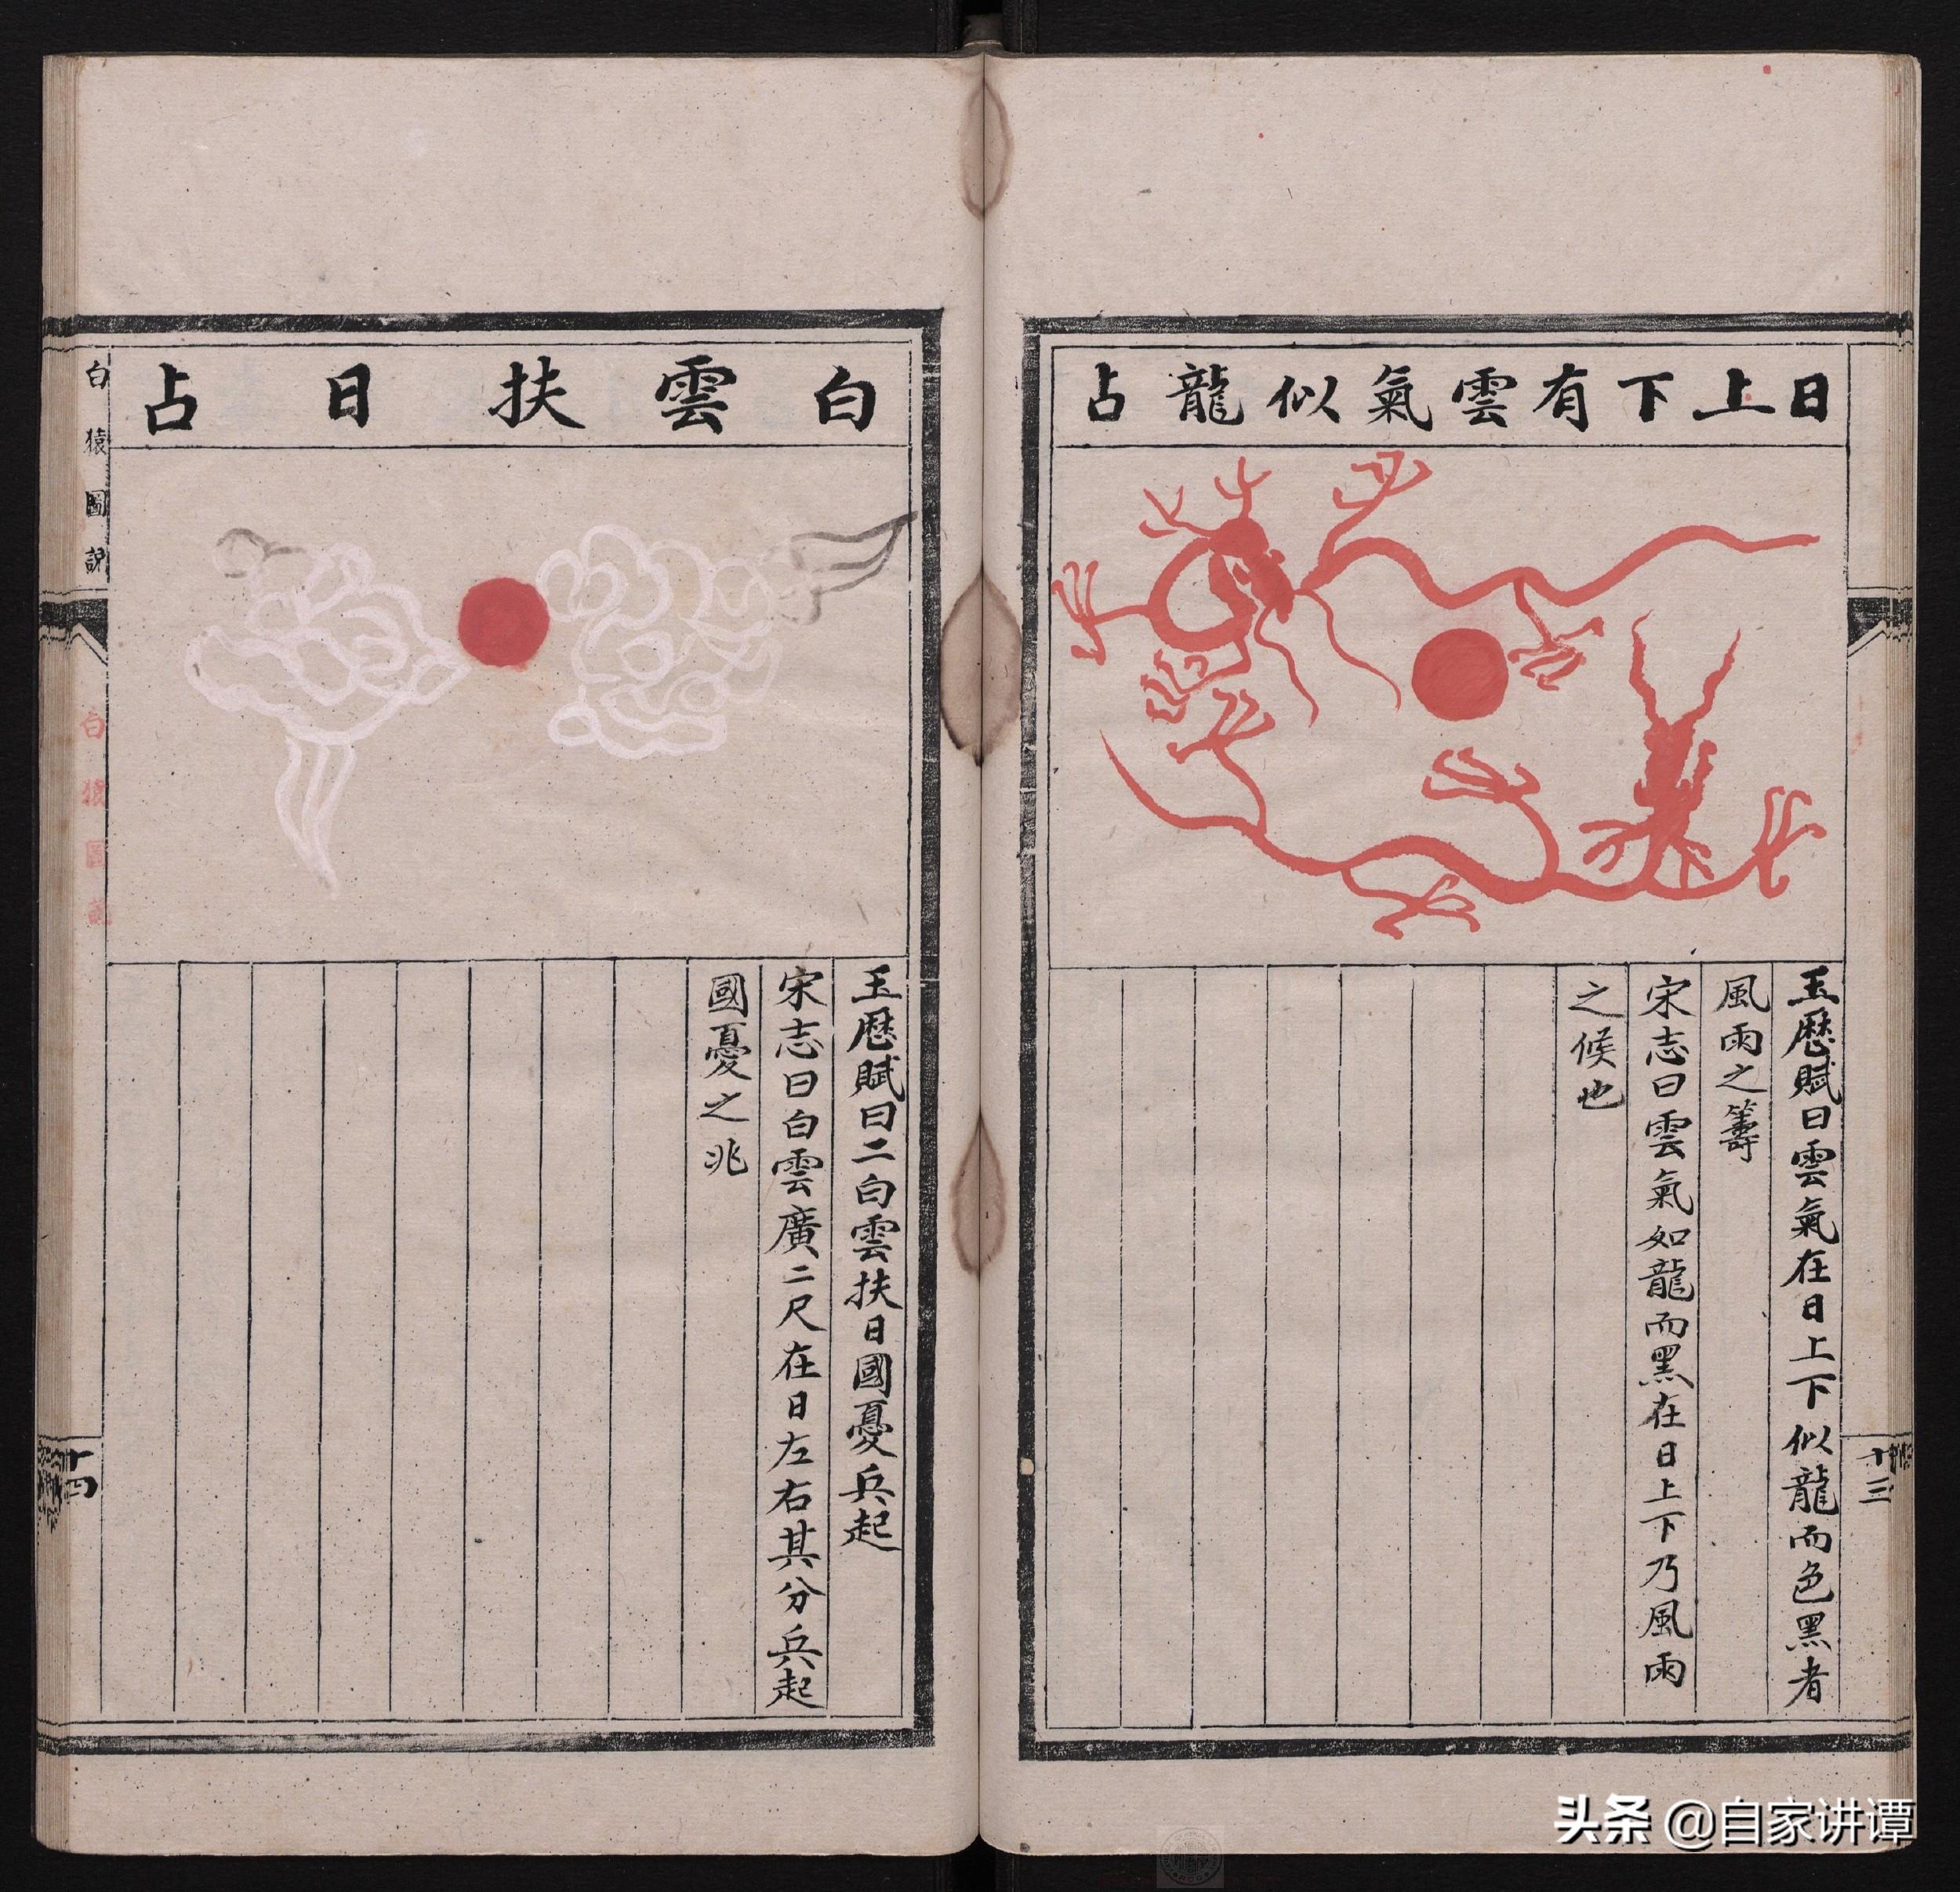 日上下有雲氣似龍占
玉曆賦曰雲氣在日上下似龍而色黑者
風雨之籌
宋志曰雲氣如龍而黑在日上下乃風雨
之候也
十三
白雲扶日占
玉曆賦曰二白雲扶日國憂兵起
宋志曰白雲廣二尺在日左右其分兵起
國憂之兆
白猿圖說
白猿圖說
十四
头条 @自家讲谭